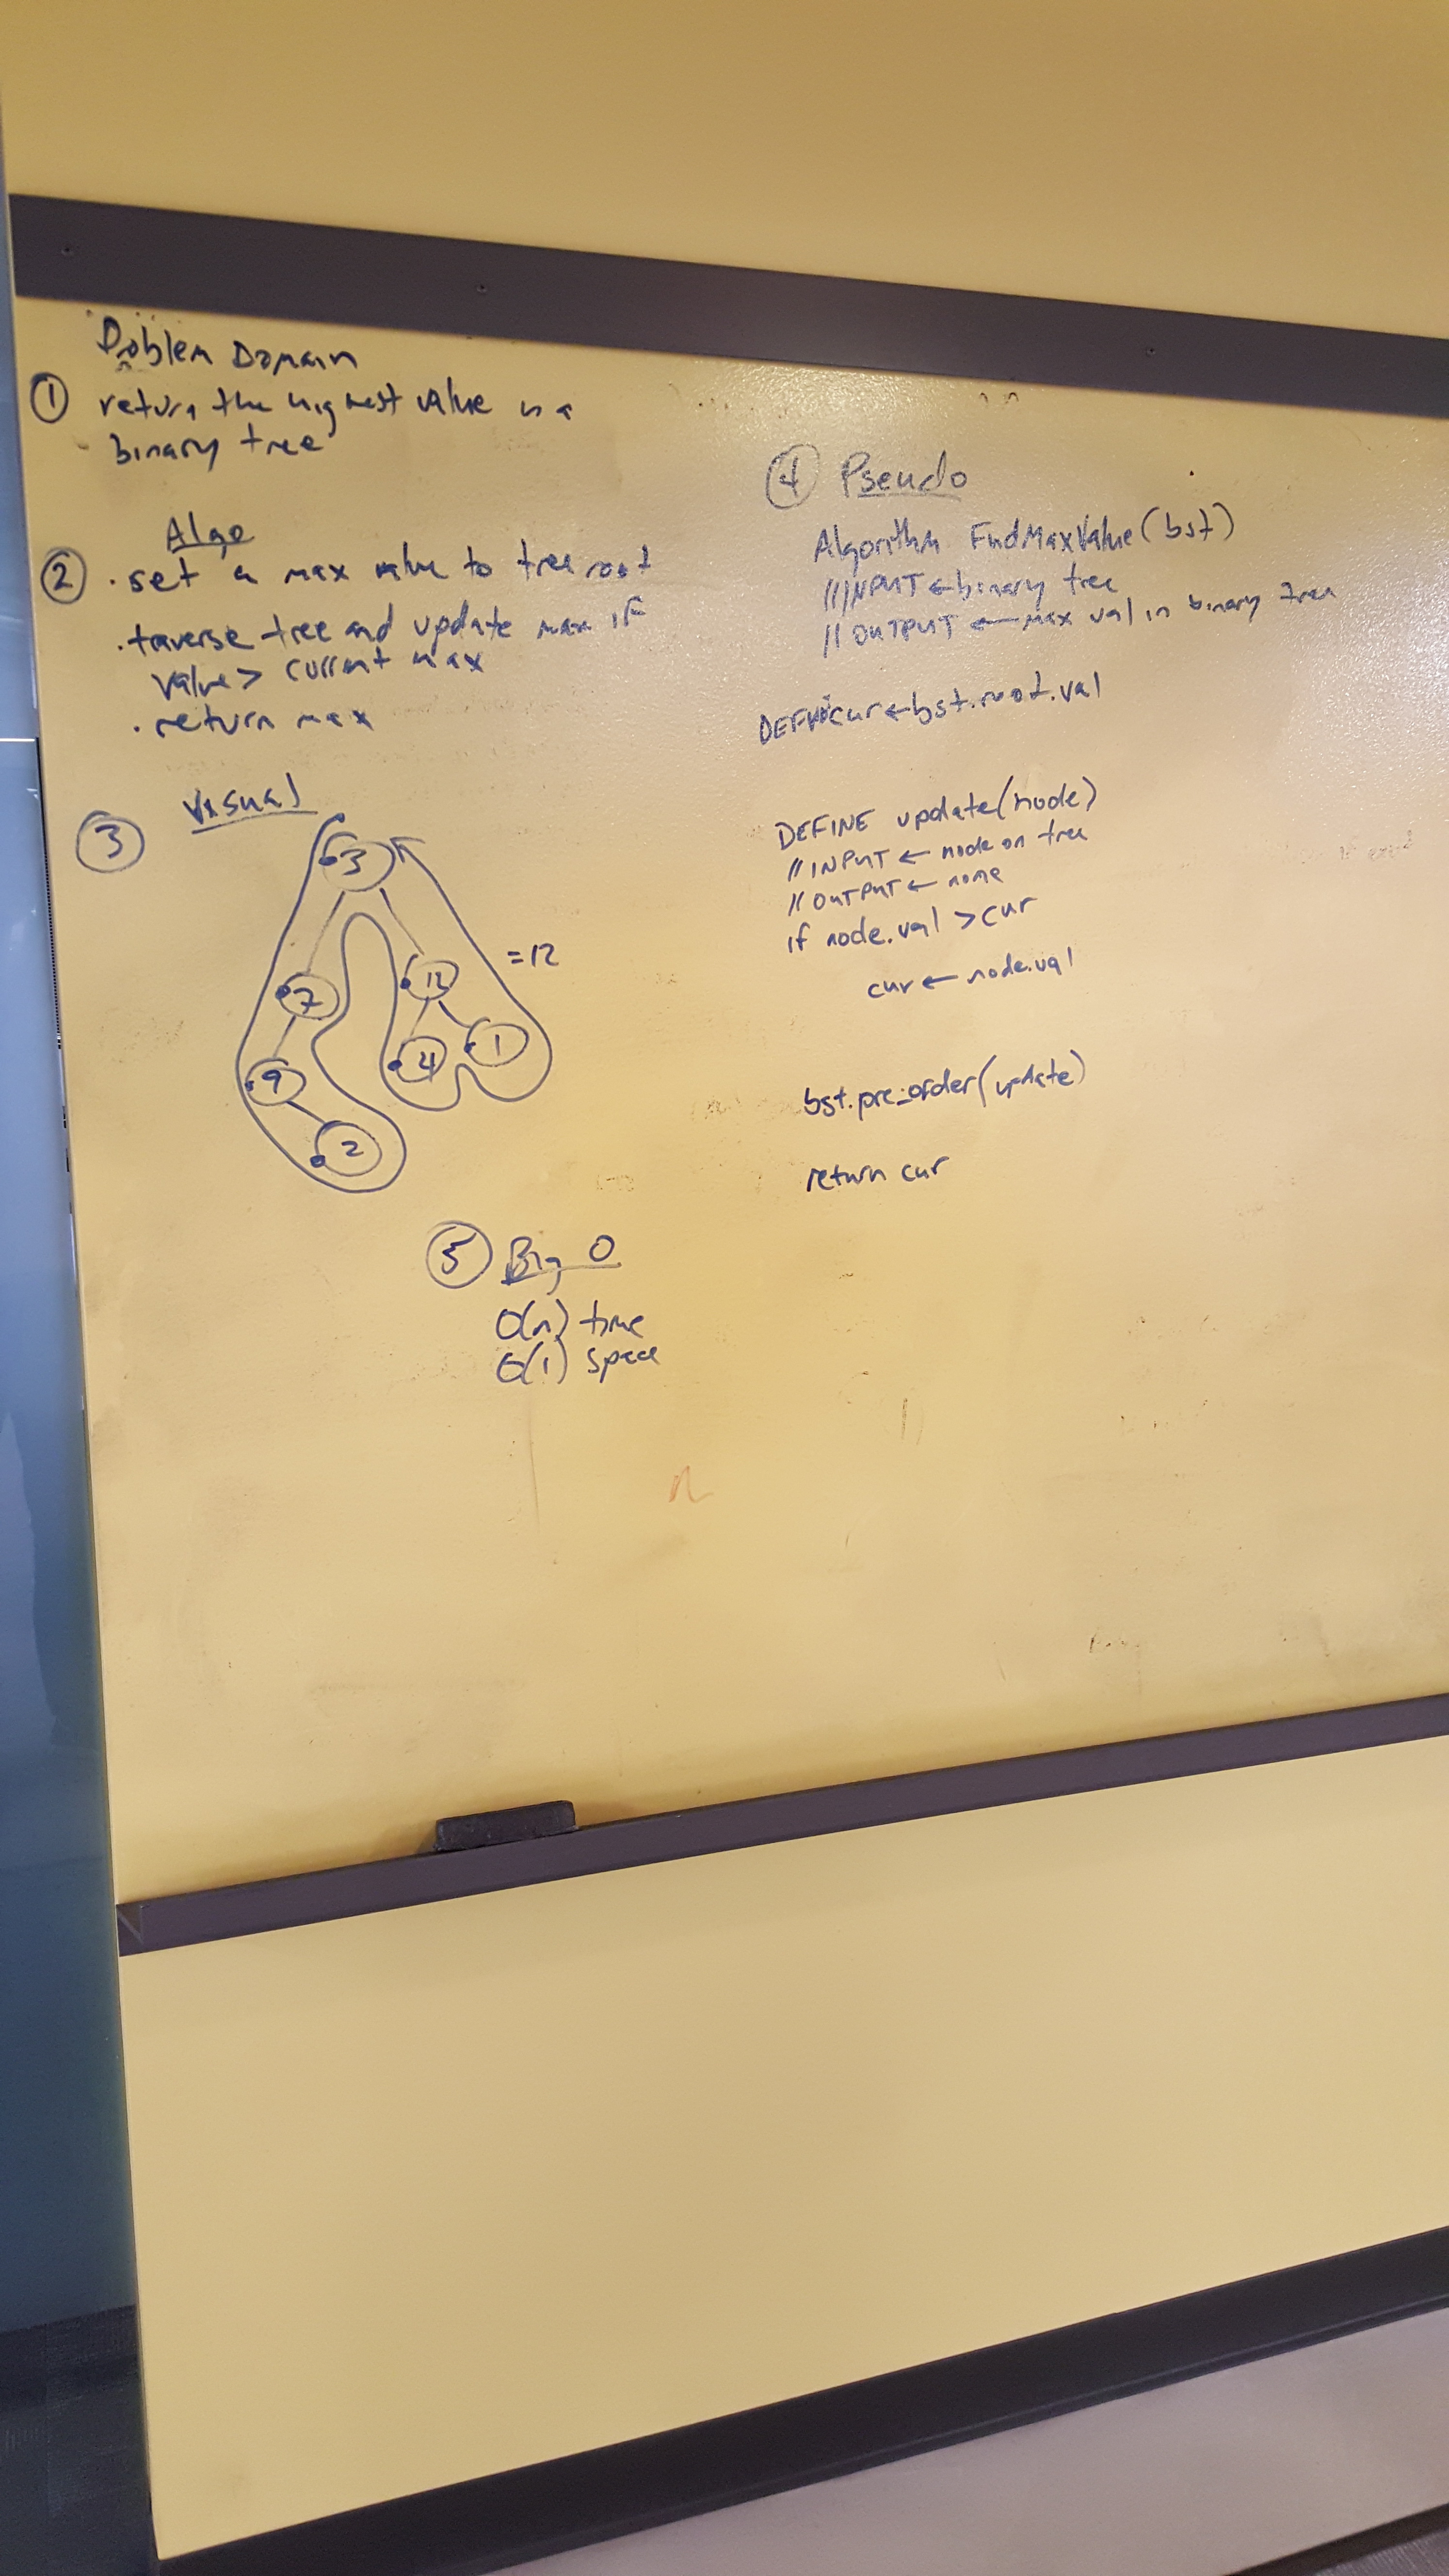 Problem Domain
① return the highest value in a
binary tree
Algo
② . set a max value to tree root
. traverse tree and update max if
value > current max
. return max
③ Visual
3
7
12
= 12
9
4
1
2
④ Pseudo
Algorithm FindMaxValue(bst)
// INPUT ← binary tree
// OUTPUT ← max val in binary tree
DEFINE cur ← bst.root.val
DEFINE update(node)
// INPUT ← node on tree
// OUTPUT ← none
if node.val > cur
cur ← node.val
bst.pre_order(update)
return cur
⑤ Big O
O(n) time
O(1) space